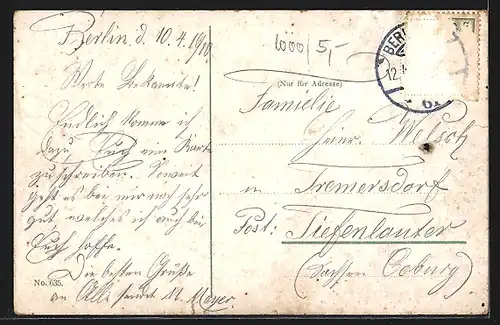 Berlin d. 10.4.1910
Werte Bekannte!
Endlich komme ich
dazu Euch eine Karte
zu schreiben. Soweit
geht es bei mir noch sehr
gut welches ich auch bei
Euch hoffe.
Die besten Grüße
an Alle sendet M. Meyer
No. 635.
1000/5,-
(Nur für Adresse)
BER
12.
Familie
Heinr. Welsch
in Tremersdorf
Post: Tiefenlauter
(Sachsen Coburg)